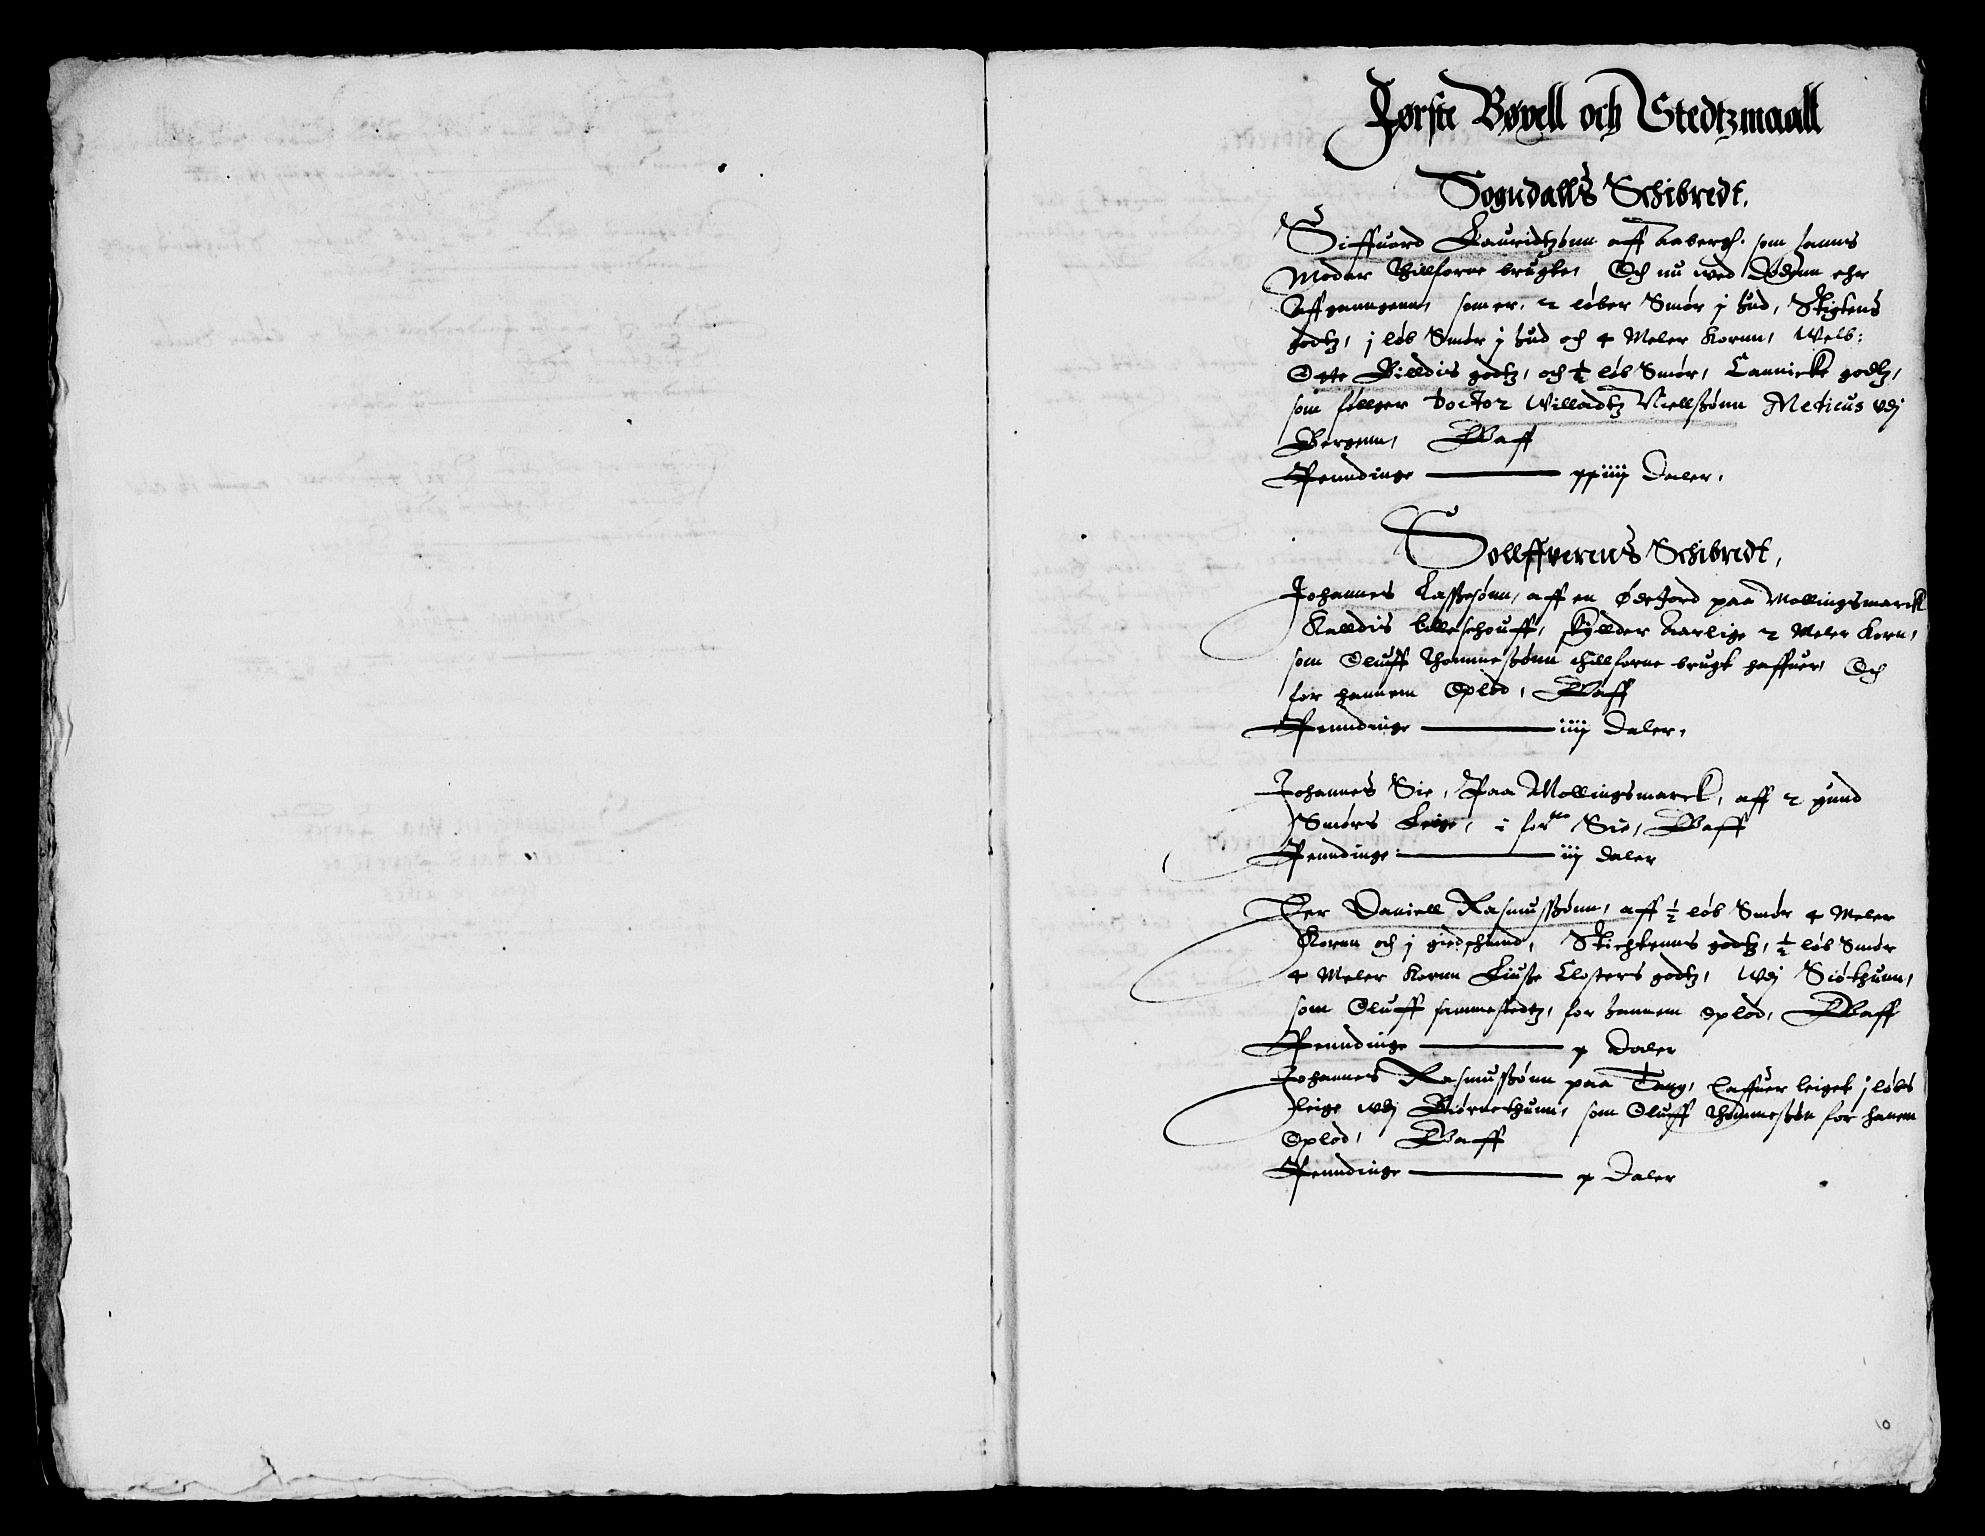 Første Bøxell och Stedtzmaall
Sogndalls Schibredt.
Siffuord Lauridtzønn aff Aabergh. som hanns
Moder thillforne brugte, Och nu wed Døden ehr
Affganngenn, som er, 2 løber Smør j hud, Stigtens
godtz, j løb Smør j hud och 4 Meler Kornn, Welb:
Otte Billdis godtz, och ½ løb Smør, Cannicke godtz,
som følger Doctor Willadtz Niellsønn Medicus vdj
Bergenn, Gaff
Penndinge ——— xxiiij Daler,
Sollffuerens Schibredt,
Johannes Lassesønn, aff en Øde Jord paa Mollingsmarck
Kalldis lilleschouff, skyllder Aarlige 2 Meler Korn,
som Oluff Thommesønn thillforne brugt haffuer, Och
for hannem Oplod, Gaff
Penndinge ——— iiij Daler,
Johannes Sie, Paa Mollingsmarck, aff 2 pund
Smørs Leige, i for^ne Sie, Gaff
Penndinge ——— iij Daler
Her Daniell Rasmussønn, aff ½ løb Smør 4 Meler
Kornn och j giedschind, Stichtenns godtz, ½ løb Smør
4 Meler Kornn Liusse Closters godtz, wdj Siøthunn,
som Oluff sammestedtz, for hannem Oplod, Gaff
Penndinge ——— x Daler
Johannes Rasmussønn paa Tang, haffuer leiget j løbs
leige wdj Biørnethunn, som Oluff Thommesøn for hanem
Oplod, Gaff
Penndinge ——— x Daler
10